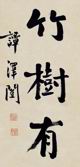 竹樹有
譚澤闓